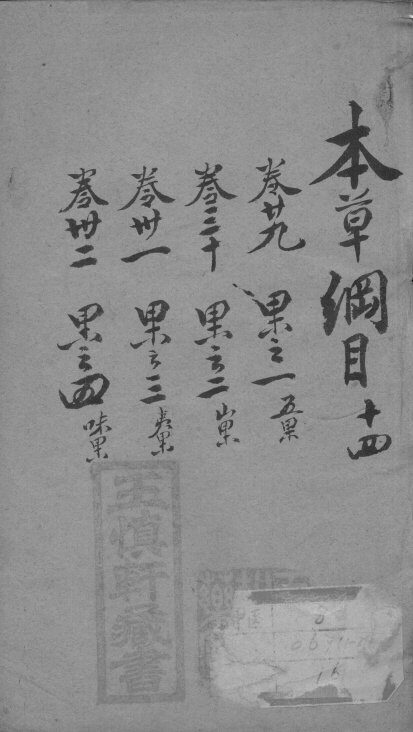 本草綱目 十四
卷廿九 果之一 五果
卷三十 果之二 山果
卷卅一 果之三 夷果
卷卅二 果之四 味果
王慎軒藏書